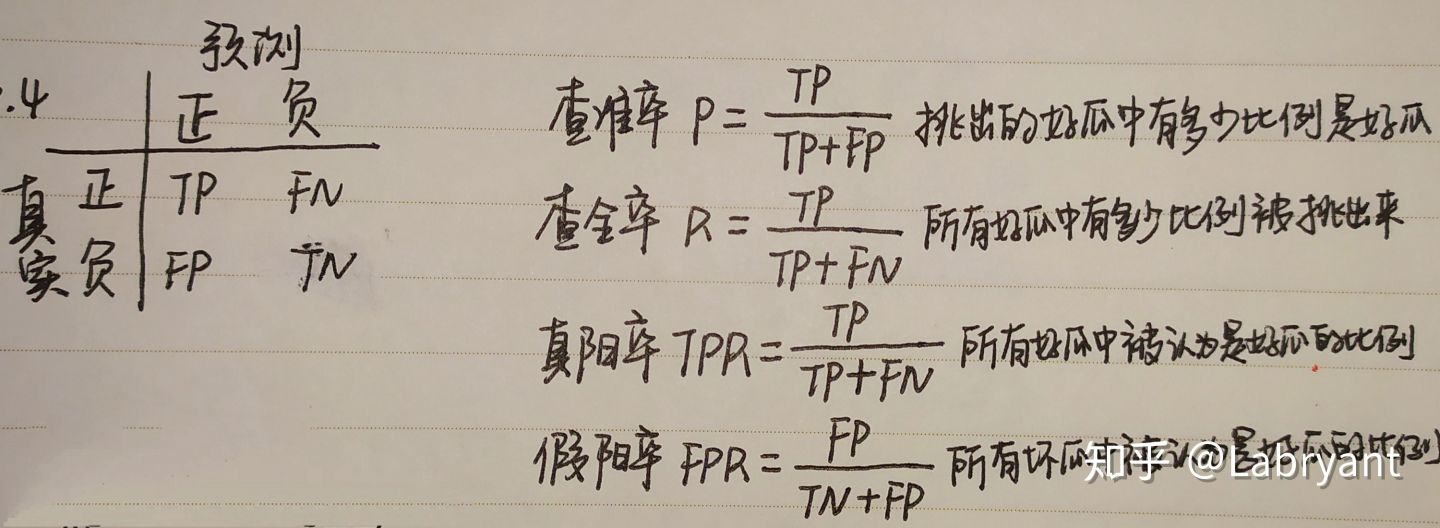 .4
预测
正 负
真实 正 TP FN
负 FP TN
查准率 P = TP / TP+FP 挑出的好瓜中有多少比例是好瓜
查全率 R = TP / TP+FN 所有好瓜中有多少比例被挑出来
真阳率 TPR = TP / TP+FN 所有好瓜中被认为是好瓜的比例
假阳率 FPR = FP / TN+FP 所有坏瓜中被认为是好瓜的比例
知乎 @Labryant